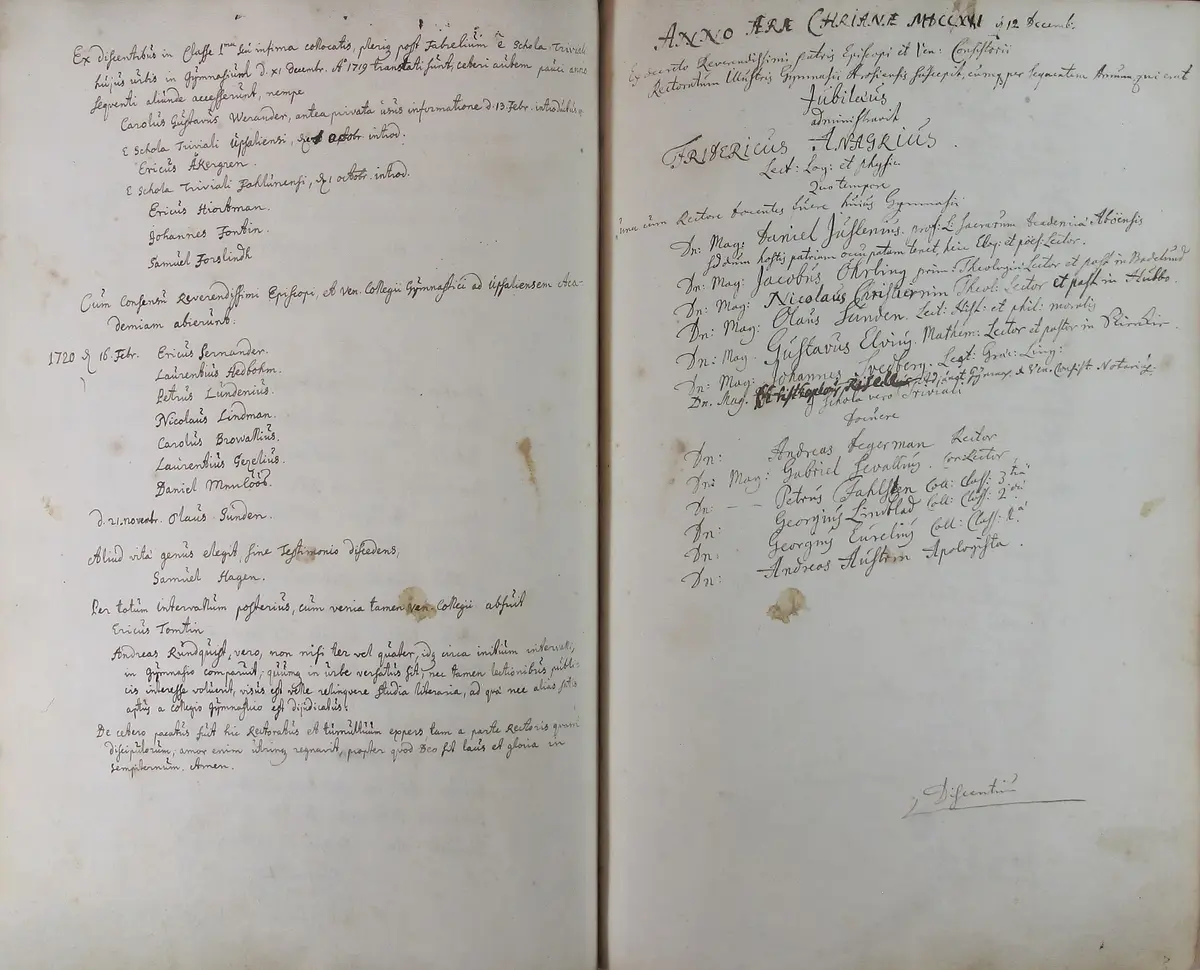 Ex discentibus in Classe 1ma seu infima collocatis, pleriq post Fabrelium è Schola Triviali
hujus urbis in Gymnasium d. XI decembr. Aº 1719 translati sunt, ceteri autem pauci anno
sequenti aliunde accesserunt, nempe
Carolus Gustavus Werander, antea privata usus informatione d. 13 Febr. introductus
E Schola Triviali Upsaliensi, octobr introd.
Ericus Åkergren.
E Schola Triviali Fahlunensi, d 1 octobr. introd.
Ericus Hiortman.
Johannes Fontin.
Samuel Forslindh
Cum Consensu Reverendissimi Episcopi, et Ven. Collegii Gymnastici ad Upsaliensem Aca-
demiam abierunt.
1720 d 16 Febr. Ericus Fernander.
Laurentius Hedbohm.
Petrus Lundenius.
Nicolaus Lindman.
Carolus Browallius.
Laurentius Gezelius.
Daniel
d. 21. novembr. Olaus Sunden.
Aliud vitæ genus elegit, sine Testimonio discedens,
Samuel Hagen.
Per totum intervallum posterius, cum venia tamen ven. Collegii abfuit
Ericus Tomtin
Andreas Rundquist, vero, non nisi ter vel quater, idq circa initium intervalli,
in Gymnasio comparuit, quumq in urbe versatus sit, nec tamen lectionibus publi-
cis interesse voluerit, visus est velle relinquere studia literaria, ad quæ nec alias satis
aptus a collegio Gymnastico est dijudicatus.
De cetero pacatus fuit hic Rectoratus et tumultuum expers tam a parte Rectoris quam
discipulorum, amor enim utrinq regnavit, propter quod Deo sit laus et gloria in
sempiternum. Amen.
ANNO ÆRÆ CHRIANÆ d 12 Decemb:
Ex decreto Reverendissimi patris Episcopi et Ven: Consistorii
Rectoratum Illustris Gymnasii Arosiensis suscepit, eumq per sequentem Annum, qui erat
Jubilæus
administravit
FRIDERICUS ANAGRIUS.
Lect: Log: et physic
Quo tempore
una cum Rectore docentes fuere hujus Gymnasii
Dn: Mag: Daniel Juslenius. prof: L: Sacrarum Academiæ Aboensis
sed dum hostis patriam occupatam tenet, heic Eloq: et poës: Lector.
Dn: Mag: Jacobus Ohrling prim: Theologiæ Lector et past in Badelund
Dn: Mag: Nicolaus Christiernin Theol: Lector et past in Hubbo.
Dn: Mag: Olaus Sunden. Lect: Hist: et phil: moralis
Dn: Mag. Gustavus Elvius. Mathem: Lector et pastor in
Dn: Mag: Johannes Svedberg. Lect: Græc: Ling:
Dn. Mag. Adjunct Gymnas, & Ven. Consist. Notarius.
Schola vero Triviali
docuere
Dn: Andreas Segerman Rector
Dn: Mag: Gabriel Sevallius. Con:Lector
Dn: – – Petrus Fahlsten Coll: Class: 3tiæ
Dn: Georgius Lindblad Coll: Class: 2dæ
Dn: Georgius Eurelius Coll: Class: 1æ
Dn: Andreas Austrin Apologista.
Discentiu